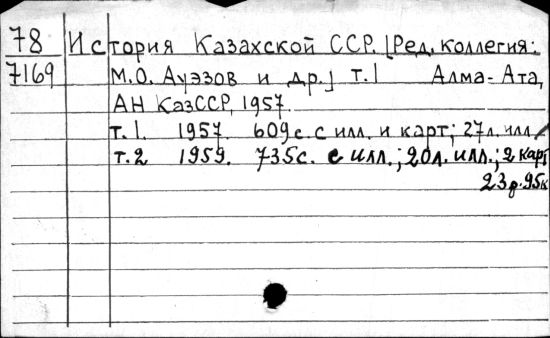 78 История Казахской ССР. [Ред. коллегия:
7169 М.О. Ауэзов и др.] т.1 Алма-Ата,
АН КазССР, 1957.
т.1. 1957. 609с. с илл. и карт; 27л. илл.
т.2 1959. 735с. с илл.; 20л. илл.; 2 карт
23р.95к